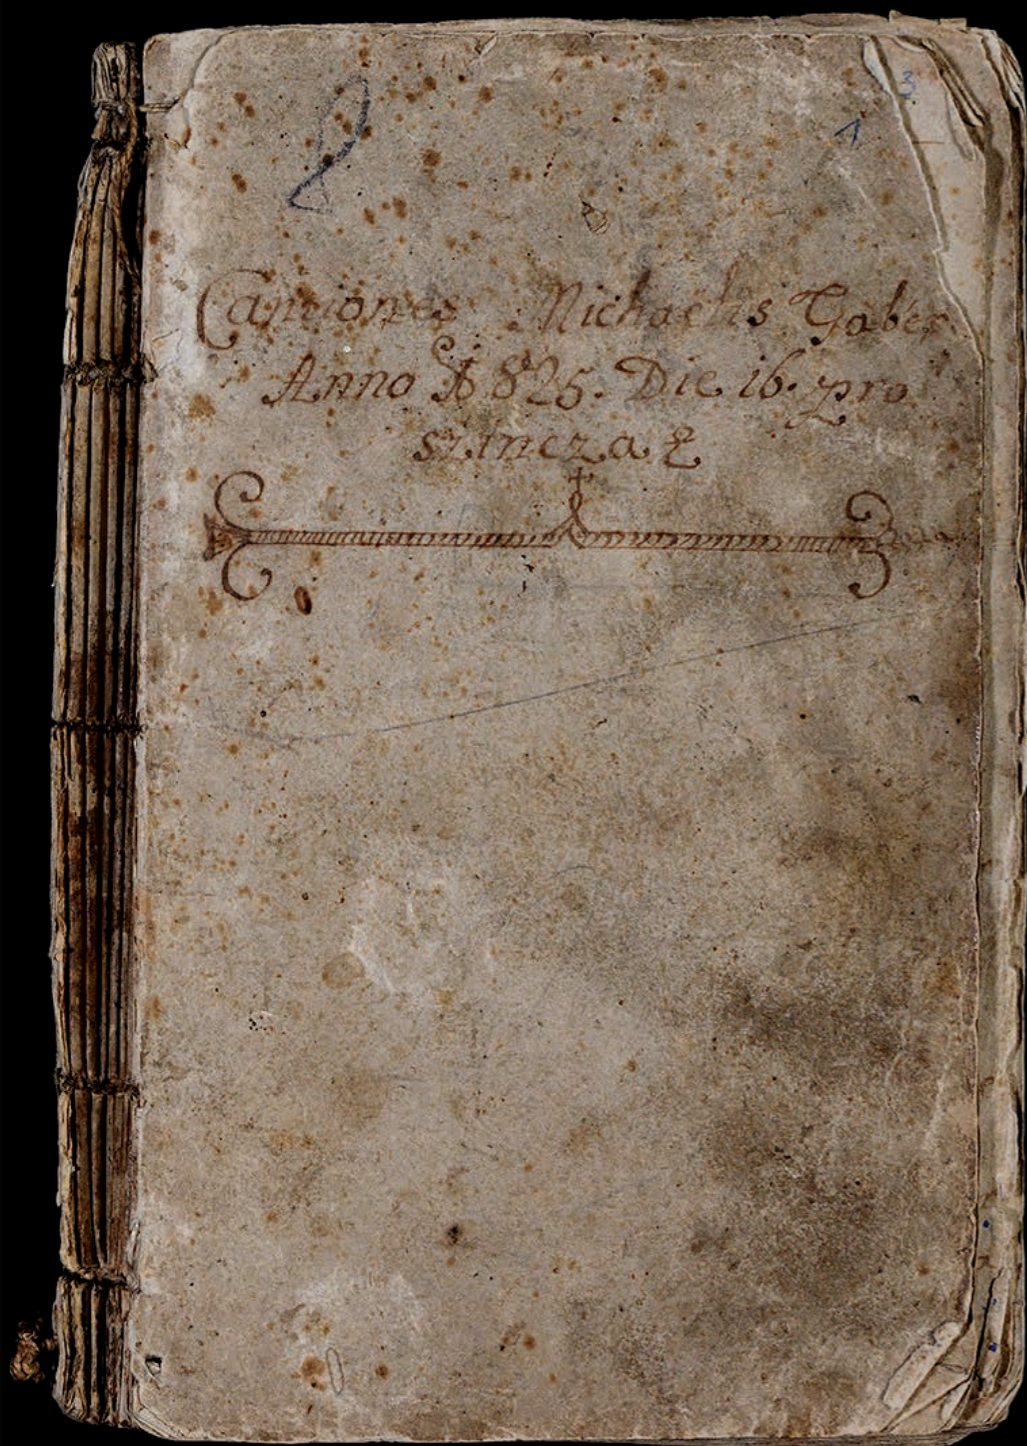 3
1
Cantiones Michaelis Gaber
Anno 1825. Die 16. pro
szincza